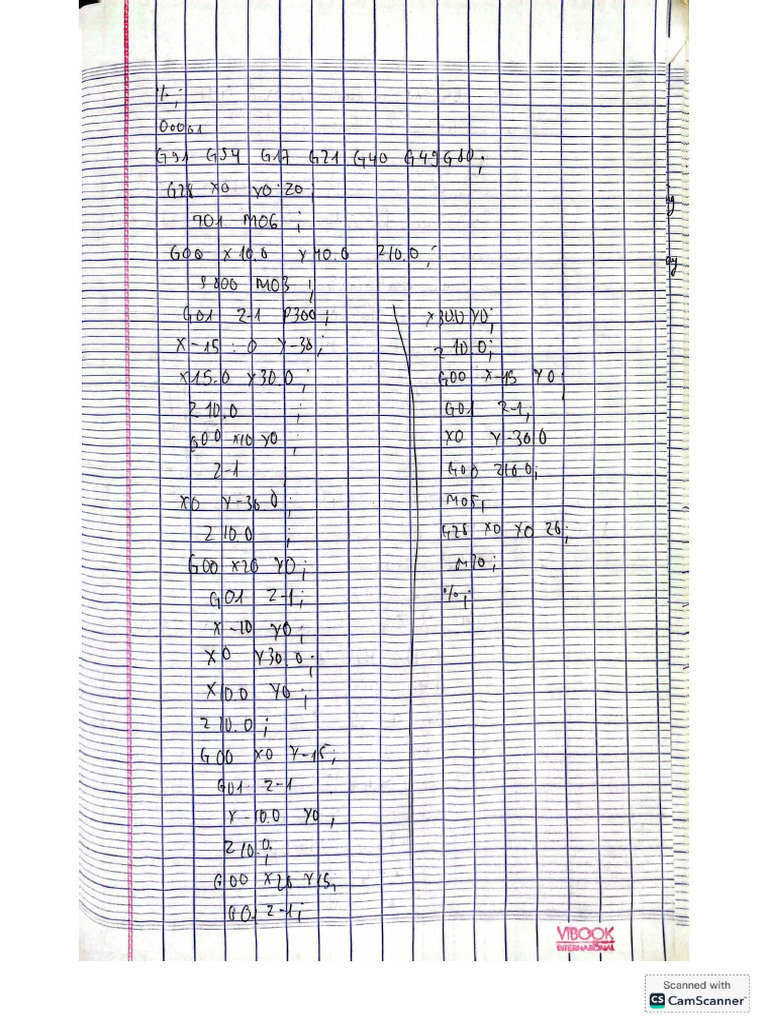 %;
O0001
G91 G54 G17 G21 G40 G49 G80;
G28 X0 Y0 Z0
T01 M06 ;
G00 X10.0 Y40.0 Z10.0;
S800 M03 ;
G01 Z-1 F300;
X-15.0 Y-30;
X15.0 Y30.0;
Z10.0 ;
G00 X10 Y0 ;
Z-1
X0 Y-30.0 ;
Z10.0 ;
G00 X20 Y0;
G01 Z-1;
X-10 Y0;
X0 Y30.0;
X10.0 Y0;
Z10.0;
G00 X0 Y-15;
G01 Z-1
X-10.0 Y0 ;
Z10.0;
G00 X20 Y15,
G01 Z-1;
X300 Y0;
Z10.0;
G00 X-15 Y0;
G01 Z-1;
X0 Y-30.0
G00 Z10.0;
M05;
G28 X0 Y0 Z0;
M30;
%;
VIBOOK
INTERNATIONAL
Scanned with
CS CamScanner